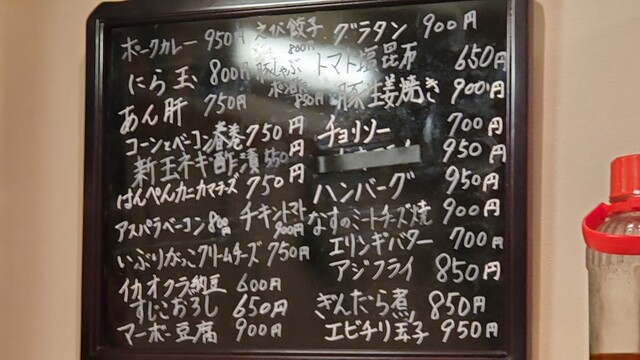 ポークカレー 950円
えび餃子 800円
にら玉 800円
豚しゃぶ ポン酢 850円
あん肝 750円
コーンとベーコン春巻 750円
新玉ネギ酢漬 550円
はんぺんカニカマチーズ 750円
アスパラベーコン 800円
チキントマト 900円
いぶりがっこクリームチーズ 750円
イカオクラ納豆 600円
すじこおろし 650円
マーボー豆腐 900円
グラタン 900円
トマト塩昆布 650円
豚生姜焼き 900円
チョリソー 700円
950円
ハンバーグ 950円
なすのミートチーズ焼 900円
エリンギバター 700円
アジフライ 850円
ぎんだら煮 850円
エビチリ玉子 950円